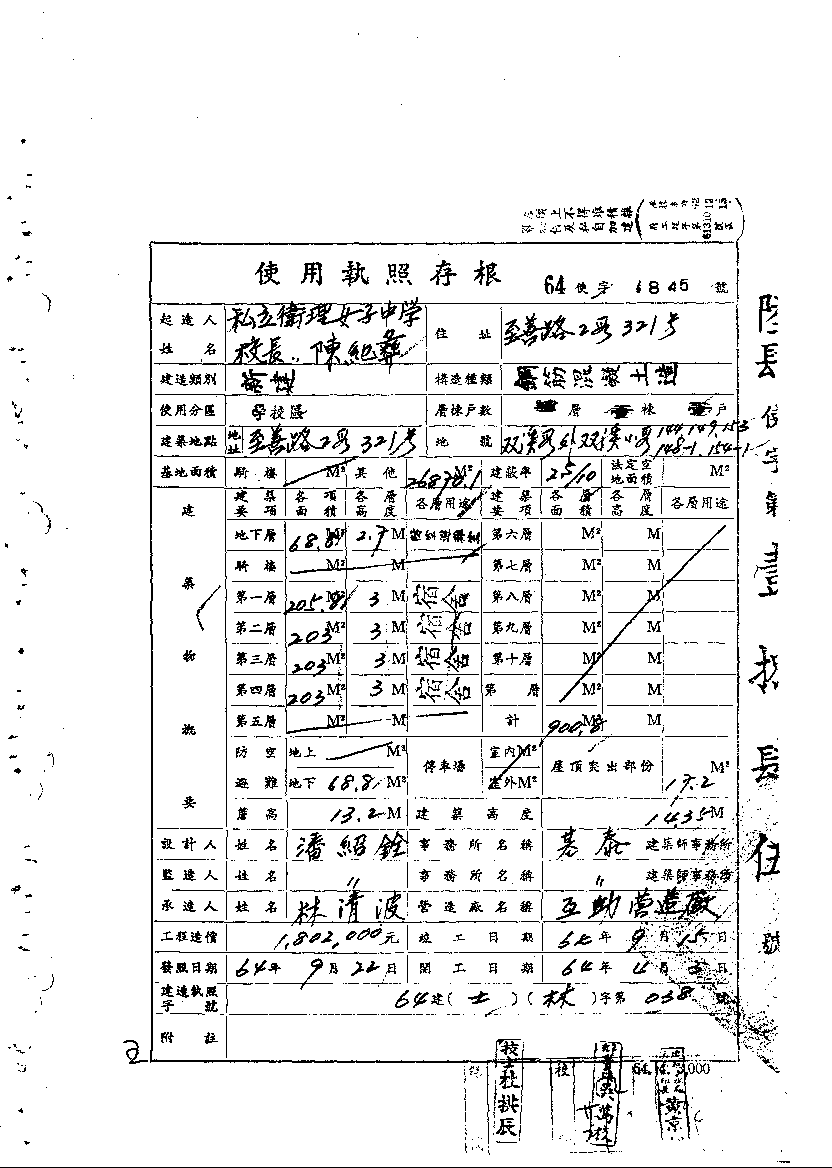 使用執照存根 64使字 6845 號
起造人姓名 私立衛理女子中学 校長 陳紀彝 住址 至善路2段321号
建造類別 構造種類 鋼筋混凝土造
使用分區 學校區 層棟戶數 層 棟 戶
建築地點 地址 至善路2段321号 地號 双溪段外双溪小段 144,149,153 148-1 154-1
基地面積 騎樓 M² 其他 26870.1 M² 建蔽率 25/10 法定空地面積 M²
建築物概要 建築要項 各項面積 各層高度 各層用途 建築要項 各層面積 各層高度 各層用途
地下層 68.81 M² 2.7 M 第六層 M² M
騎樓 M² M 第七層 M² M
第一層 205.81 M² 3 M 宿舍 第八層 M² M
第二層 203 M² 3 M 宿舍 第九層 M² M
第三層 203 M² 3 M 宿舍 第十層 M² M
第四層 203 M² 3 M 宿舍 第 層 M² M
第五層 M² M 計 900.8 M² M
防空避難 地上 M² 停車場 室內 M² 屋頂突出部份 17.2 M²
地下 68.81 M² 室外 M²
簷高 13.2 M 建築高度 14.35 M
設計人 姓名 潘紹銓 事務所名稱 基泰 建築師事務所
監造人 姓名 〃 事務所名稱 〃 建築師事務所
承造人 姓名 林清波 營造廠名稱 互助營造廠
工程造價 1,802,000元 竣工日期 64年9月15日
發照日期 64年9月22日 開工日期 64年4月3日
建造執照字號 64建(士)(林)字第 038 號
附註
技士杜拱辰